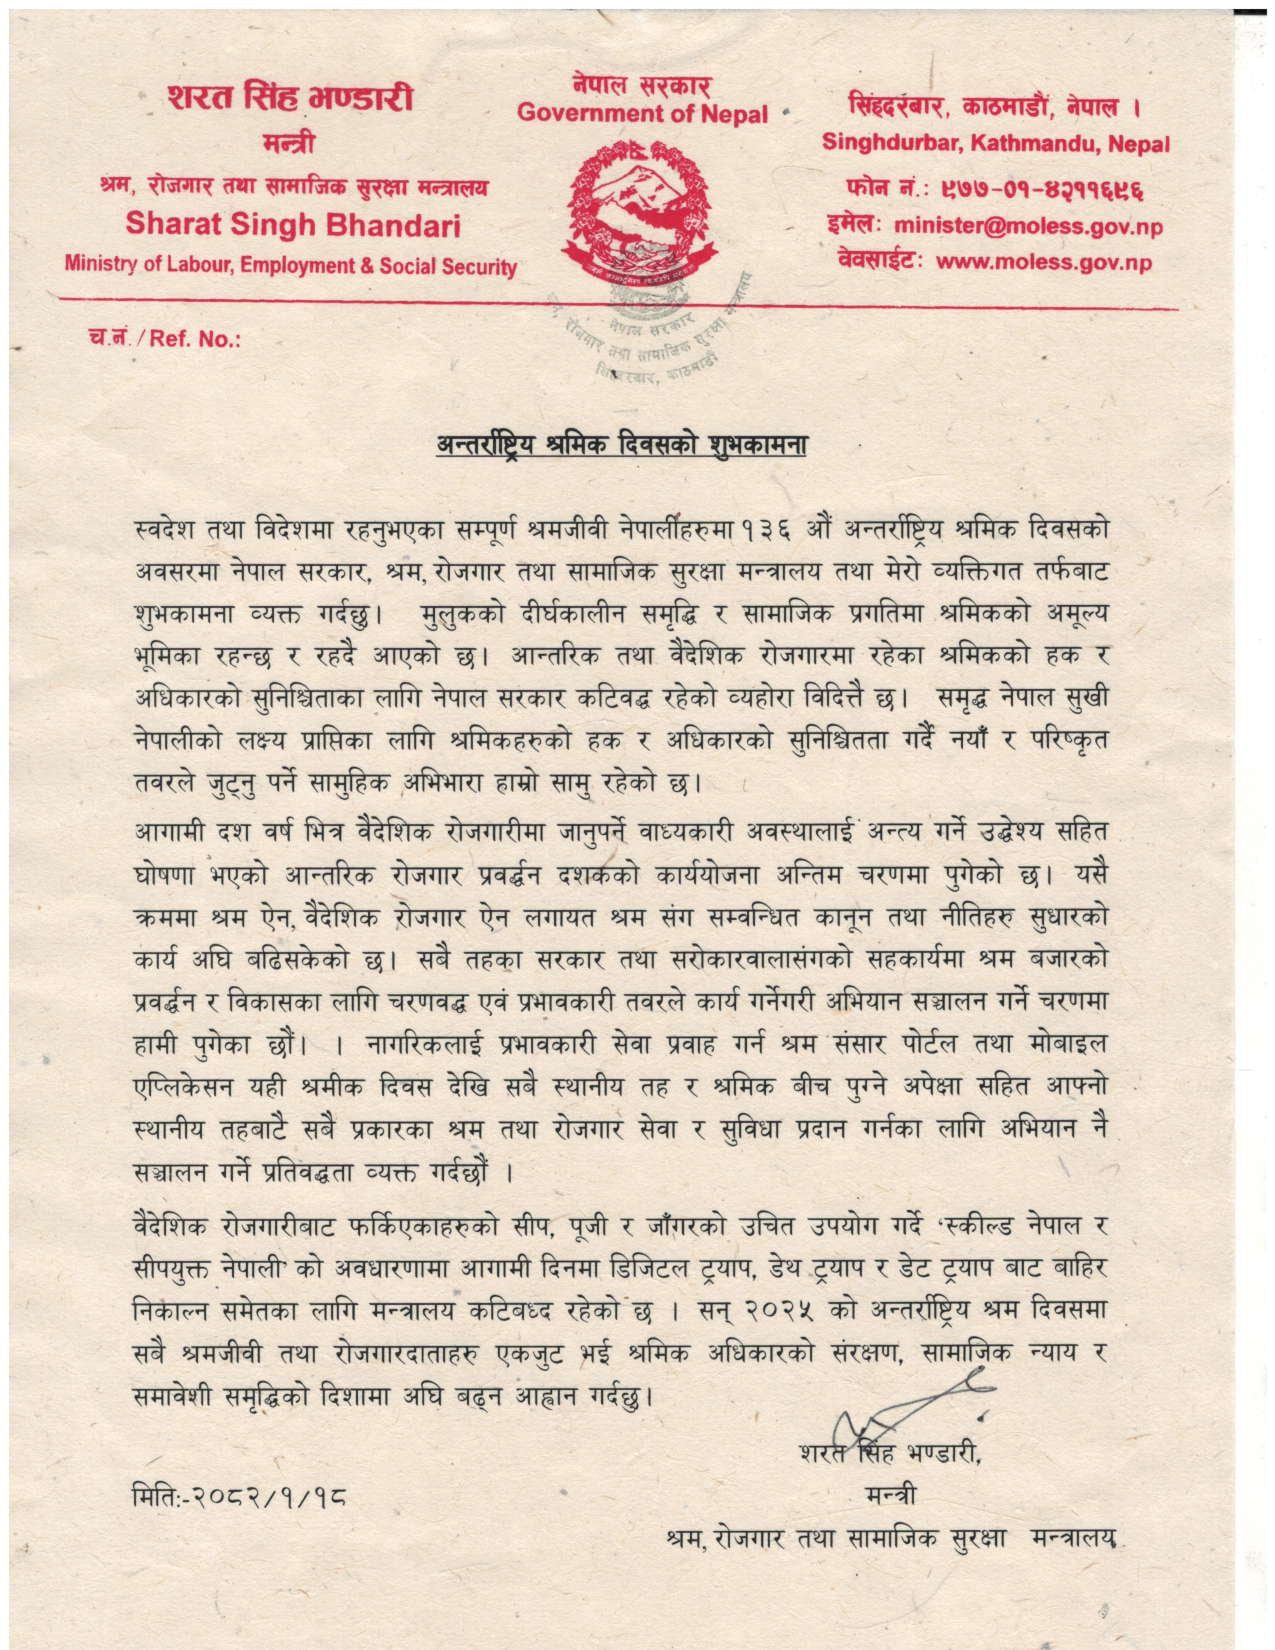 शरत सिंह भण्डारी
मन्त्री
श्रम, रोजगार तथा सामाजिक सुरक्षा मन्त्रालय
Sharat Singh Bhandari
Ministry of Labour, Employment & Social Security
नेपाल सरकार
Government of Nepal
सिंहदरबार, काठमाडौं, नेपाल ।
Singhdurbar, Kathmandu, Nepal
फोन नं.: ९७७-०१-४२११६९६
इमेल: minister@moless.gov.np
वेवसाईट: www.moless.gov.np
नेपाल सरकार
श्रम, रोजगार तथा सामाजिक सुरक्षा मन्त्रालय
सिंहदरबार, काठमाडौं
च.नं. / Ref. No.:
अन्तर्राष्ट्रिय श्रमिक दिवसको शुभकामना
स्वदेश तथा विदेशमा रहनुभएका सम्पूर्ण श्रमजीवी नेपालीहरुमा १३६ औं अन्तर्राष्ट्रिय श्रमिक दिवसको
अवसरमा नेपाल सरकार, श्रम, रोजगार तथा सामाजिक सुरक्षा मन्त्रालय तथा मेरो व्यक्तिगत तर्फबाट
शुभकामना व्यक्त गर्दछु। मुलुकको दीर्घकालीन समृद्धि र सामाजिक प्रगतिमा श्रमिकको अमूल्य
भूमिका रहन्छ र रहदै आएको छ। आन्तरिक तथा वैदेशिक रोजगारमा रहेका श्रमिकको हक र
अधिकारको सुनिश्चिताका लागि नेपाल सरकार कटिवद्ध रहेको व्यहोरा विदित्तै छ। समृद्ध नेपाल सुखी
नेपालीको लक्ष्य प्राप्तिका लागि श्रमिकहरुको हक र अधिकारको सुनिश्चितता गर्दै नयाँ र परिष्कृत
तवरले जुट्नु पर्ने सामुहिक अभिभारा हाम्रो सामु रहेको छ।
आगामी दश वर्ष भित्र वैदेशिक रोजगारीमा जानुपर्ने वाध्यकारी अवस्थालाई अन्त्य गर्ने उद्धेश्य सहित
घोषणा भएको आन्तरिक रोजगार प्रवर्द्धन दशकको कार्ययोजना अन्तिम चरणमा पुगेको छ। यसै
क्रममा श्रम ऐन, वैदेशिक रोजगार ऐन लगायत श्रम संग सम्वन्धित कानून तथा नीतिहरु सुधारको
कार्य अघि बढिसकेको छ। सबै तहका सरकार तथा सरोकारवालासंगको सहकार्यमा श्रम बजारको
प्रवर्द्धन र विकासका लागि चरणवद्ध एवं प्रभावकारी तवरले कार्य गर्नेगरी अभियान सञ्चालन गर्ने चरणमा
हामी पुगेका छौं। । नागरिकलाई प्रभावकारी सेवा प्रवाह गर्न श्रम संसार पोर्टल तथा मोबाइल
एप्लिकेसन यही श्रमीक दिवस देखि सबै स्थानीय तह र श्रमिक बीच पुग्ने अपेक्षा सहित आफ्नो
स्थानीय तहबाटै सबै प्रकारका श्रम तथा रोजगार सेवा र सुविधा प्रदान गर्नका लागि अभियान नै
सञ्चालन गर्ने प्रतिवद्धता व्यक्त गर्दछौं ।
वैदेशिक रोजगारीबाट फर्किएकाहरुको सीप, पूजी र जाँगरको उचित उपयोग गर्दे ‘स्कील्ड नेपाल र
सीपयुक्त नेपाली’ को अवधारणामा आगामी दिनमा डिजिटल ट्र्याप, डेथ ट्र्याप र डेट ट्र्याप बाट बाहिर
निकाल्न समेतका लागि मन्त्रालय कटिबध्द रहेको छ । सन् २०२५ को अन्तर्राष्ट्रिय श्रम दिवसमा
सबै श्रमजीवी तथा रोजगारदाताहरु एकजुट भई श्रमिक अधिकारको संरक्षण, सामाजिक न्याय र
समावेशी समृद्धिको दिशामा अघि बढ्न आह्वान गर्दछु।
शरत सिंह भण्डारी,
मिति:-२०८२/१/१८
मन्त्री
श्रम, रोजगार तथा सामाजिक सुरक्षा मन्त्रालय